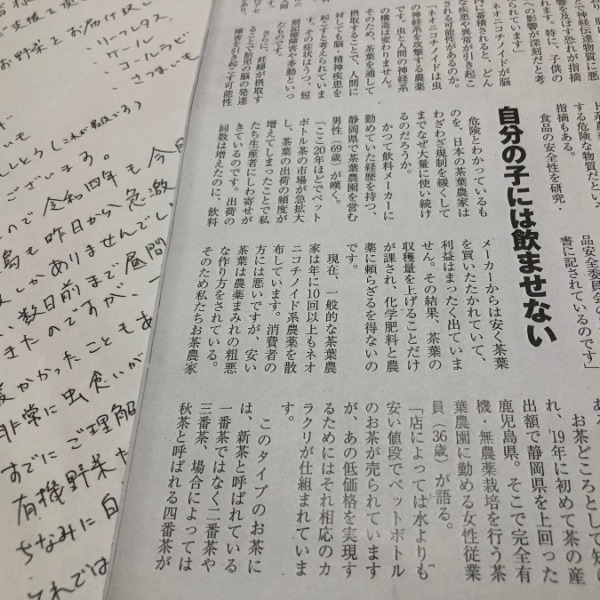 響を及ぼす恐れが指摘
れます。特に、子供の
への影響が深刻だと考
られています」
ネオニコチノイドが脳
に蓄積されると、どん
な疾患や異常が引き起こ
される可能性があるのか。
「ネオニコチノイドは虫
の神経系を攻撃する農薬
です。虫と人間の神経系
の構造は変わりません。
そのため、茶葉を通して
摂取することで、人間に
対しても脳・精神疾患を
起こすと考えられていま
す。その症状はうつ、短
期記憶障害や多動といっ
たものです。
さらに、妊婦が摂取す
ることで胎児の脳の発達
障害を引き起こす可能性
ド系農
する危険な物質だとい
指摘もある。
食品の安全性を研究・
自分の子には飲ませない
危険とわかっているも
のを、日本の茶農家は
わざわざ規制を緩くして
までなぜ大量に使い続け
るのだろうか。
かつて飲料メーカーに
勤めていた経歴を持つ、
静岡県で茶農園を営む
男性（69歳）が嘆く。
「ここ20年ほどでペット
ボトル茶の市場が急拡大
し、茶葉の出荷の頻度が
増えてしまったことで私
たち生産者にしわ寄せが
きているのです。出荷の
回数は増えたのに、飲料
品安全委員会の
書に記されているのです」
メーカーからは安く茶葉
を買いたたかれていて、
利益はまったく出ていま
せん。その結果、茶葉の
収穫量を上げることだけ
が課され、化学肥料と農
薬に頼らざるを得ないの
です。
現在、一般的な茶農
家は年に10回以上もネオ
ニコチノイド系農薬を散
布しています。消費者の
方には悪いですが、安い
茶葉は農薬まみれの粗悪
な作り方をされている。
そのため私たちお茶農家
ある。
お茶どころとして知ら
れ、'19年に初めて茶の産
出額で静岡県を上回った
鹿児島県。そこで完全有
機・無農薬栽培を行う茶
葉農園に勤める女性従業
員（36歳）が語る。
「店によっては水よりも
安い値段でペットボトル
のお茶が売られています
が、あの低価格を実現す
るためにはそれ相応のカ
ラクリが仕組まれていま
す。
このタイプのお茶に
は、新茶と呼ばれている
一番茶ではなく二番茶や
三番茶、場合によっては
秋茶と呼ばれる四番茶が
お野菜とお届け致し
レタス
ケール
コールラビ
さつまいも
ございます。
ので 令和四年も 今
島も昨日から急激
しかありませんでし
数日前まで昼間
きたのですが、
暖かかったこともあ
非常に虫食いが
すでにご理解
有機野菜だ
ちなみに白
それでは